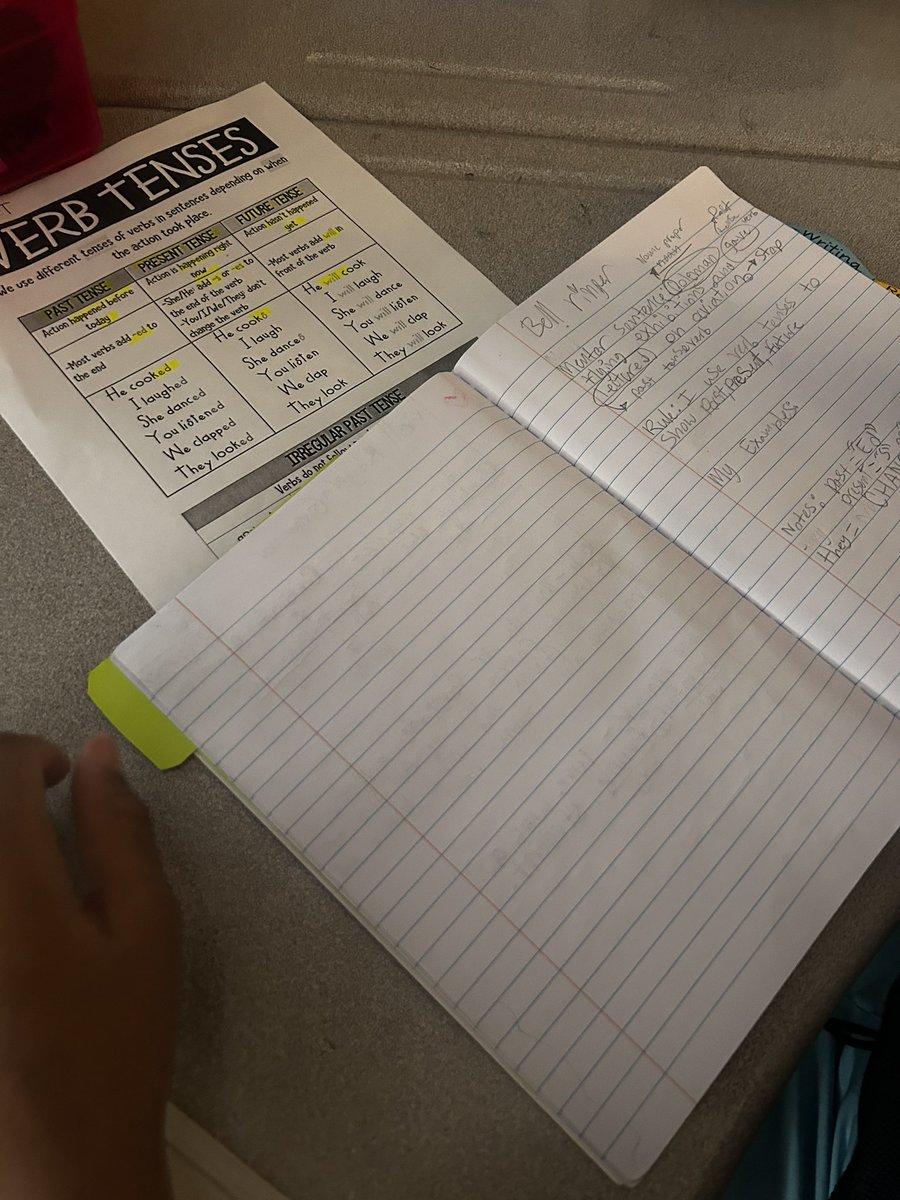 VERB TENSES
We use different tenses of verbs in sentences depending on when
the action took place.
PAST TENSE
Action happened before
today
-Most verbs add -ed to
the end
He cooked
I laughed
She danced
You listened
We clapped
They looked
PRESENT TENSE
Action is happening right
now
-She/He add -s or -es to
the end of the verb
-You/I/We/They don't
change the verb
He cooks
I laugh
She dances
You listen
We clap
They look
FUTURE TENSE
Action hasn't happened
yet
-Most verbs add will in
front of the verb
He will cook
I will laugh
She will dance
You will listen
We will clap
They will look
IRREGULAR PAST TENSE
Verbs do not
Bell ringer
Noun proper
Past
verb
Mentor Sentence: Coleman gave
flying exhibitions and
lectured on aviation. → Stop
past tense verb
Rule: I use verb tenses to
Show past present future
My Examples
Notes: past = "Ed"
present = "S"
They =
Writing